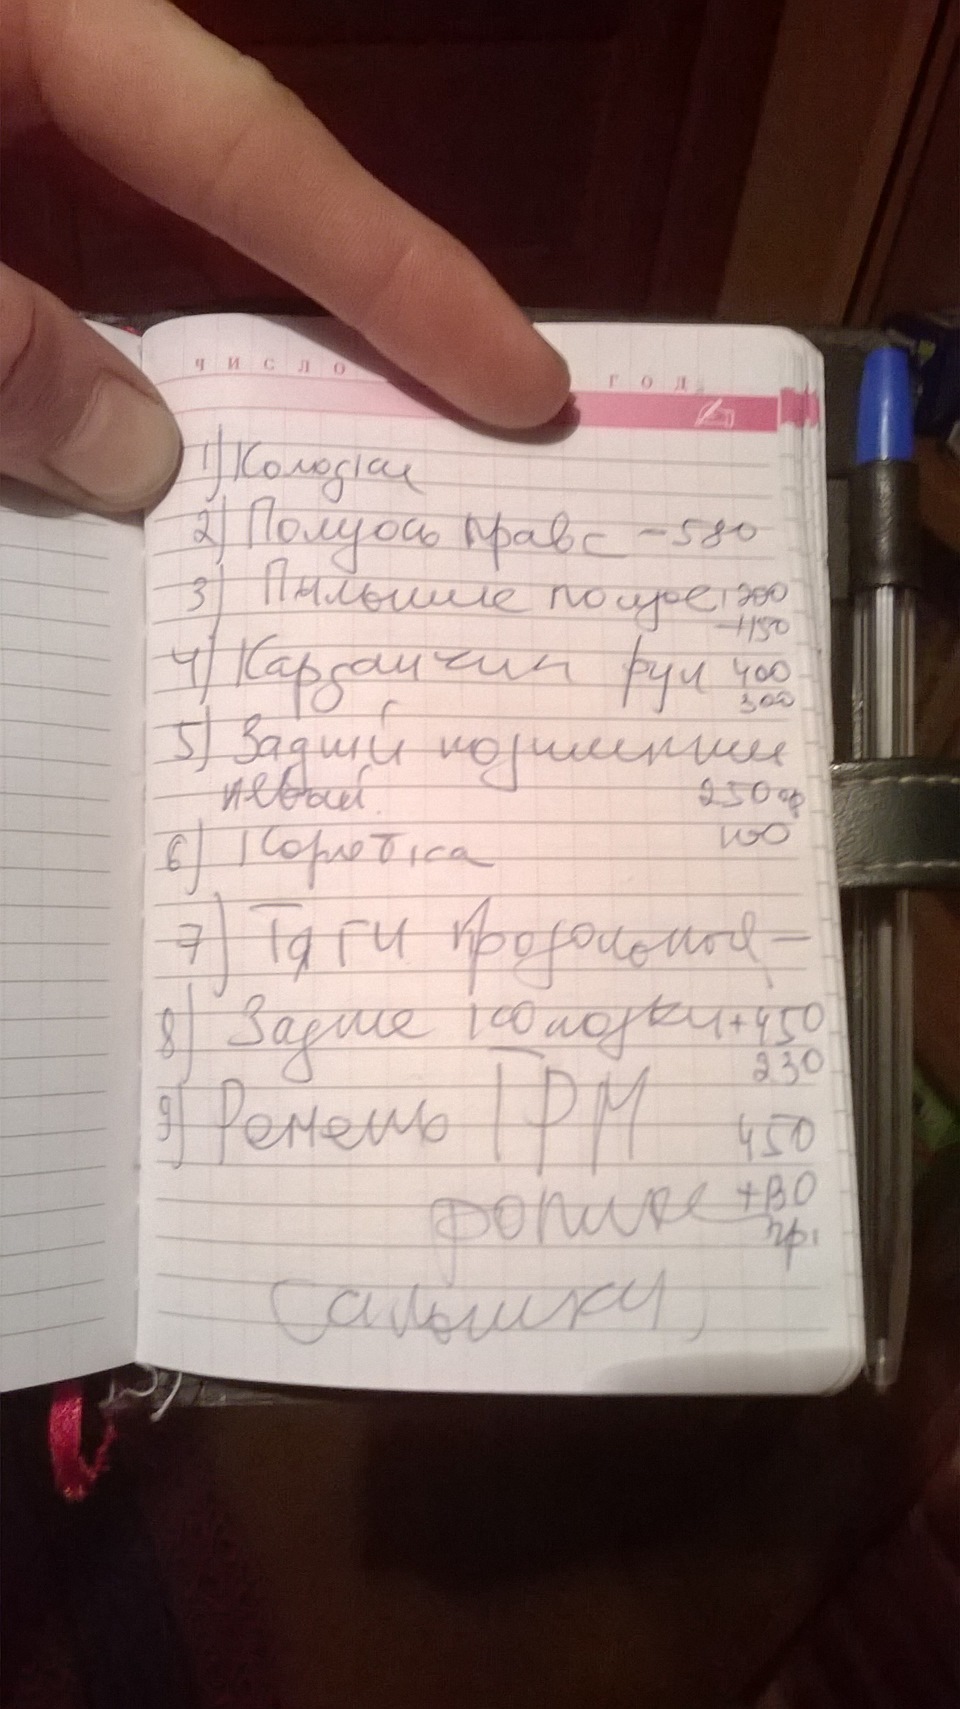 ЧИСЛО ГОД
1) Колодки
2) Полуось прав с - 580
3) Пыльние полуос 1200
-1150
4) Карданчик рул 400
300
5) Задний подшипник
левый. 250
100
6) Коробка
7) Тяги продольной -
8) Задние колодки + 450
230
9) Ремень ГРМ 450
ролике +
гр.
Сальники,